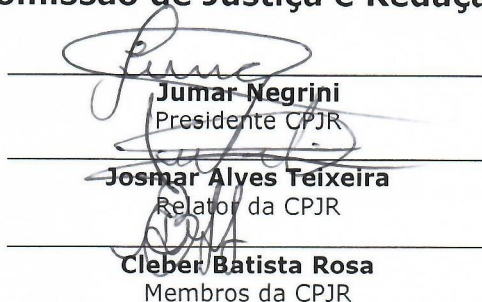 omissão de Justiça e Redaç
Jumar Negrini
Presidente CPJR
Josmar Alves Teixeira
Relator da CPJR
Cleber Batista Rosa
Membros da CPJR